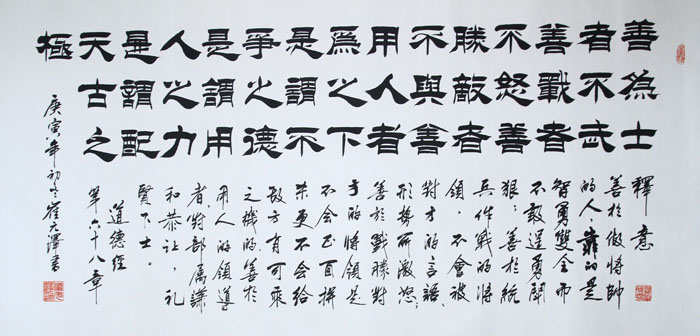 善為士
者不武
善戰者
不怒善
勝敵者
不與善
用人者
為之下
是謂不
爭之德
是謂用
人之力
是謂配
天古之
極
釋意
善於做將帥
的人,靠的是
智勇雙全而
不敢逞勇鬥
狠;善於統
兵作戰的將
領,不會被
對方的言語、
形勢所激怒;
善於戰勝對
方的將領是
不會正面
更不會给
敌方有可乘
之機的;善於
用人的領導
者,對部属謙
和恭让,礼
賢下士。
道德經
第六十八章
庚寅年初冬崔天澤書